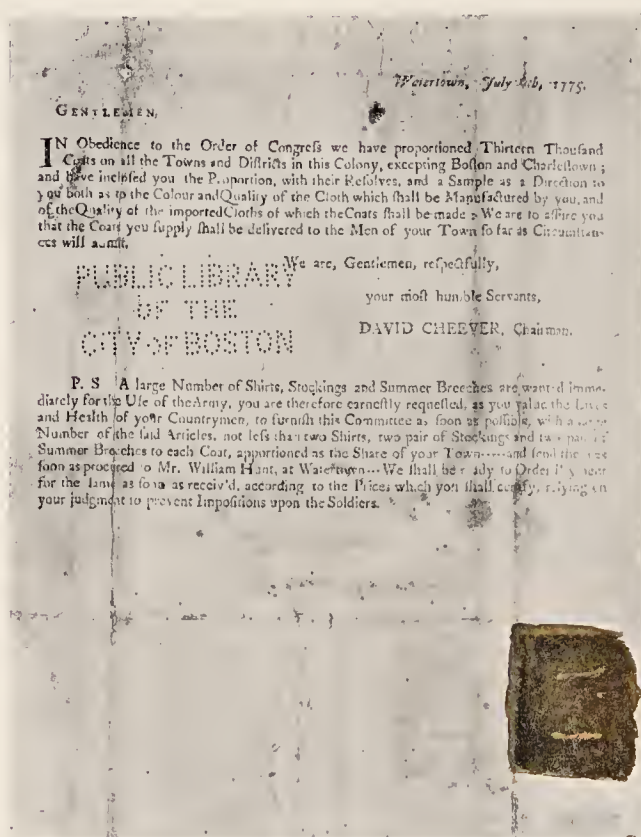 Watertown, July 1775.
GENTLEMEN,
IN Obedience to the Order of Congreſs we have proportioned Thirteen Thouſand
Coats on all the Towns and Diſtricts in this Colony, excepting Boſton and Charleſtown ;
and have incloſed you the Proportion, with their Reſolves, and a Sample as a Direction to
you both as to the Colour and Quality of the Cloth which ſhall be Manufactured by you, and
of the Quality of the imported Cloths of which the Coats ſhall be made : We are to aſſure you
that the Coats you ſupply ſhall be delivered to the Men of your Town ſo far as Circumſtan-
ces will admit.
We are, Gentlemen, reſpectfully,
your moſt humble Servants,
DAVID CHEEVER, Chairman.
PUBLIC LIBRARY
OF THE
CITY OF BOSTON
P. S A large Number of Shirts, Stockings and Summer Breeches are wanted imme-
diately for the Uſe of the Army, you are therefore earneſtly requeſted, as you value the Lives
and Health of your Countrymen, to furniſh this Committee as ſoon as poſſible, with a large
Number of the ſaid Articles, not leſs than two Shirts, two pair of Stockings and two pair of
Summer Breeches to each Coat, apportioned as the Share of your Town-----and ſend the
ſoon as procured to Mr. William Hunt, at Watertown---We ſhall be ready to Order
for the ſame as ſoon as receiv'd, according to the Prices which you ſhall certify, relying on
your judgment to prevent Impoſitions upon the Soldiers.